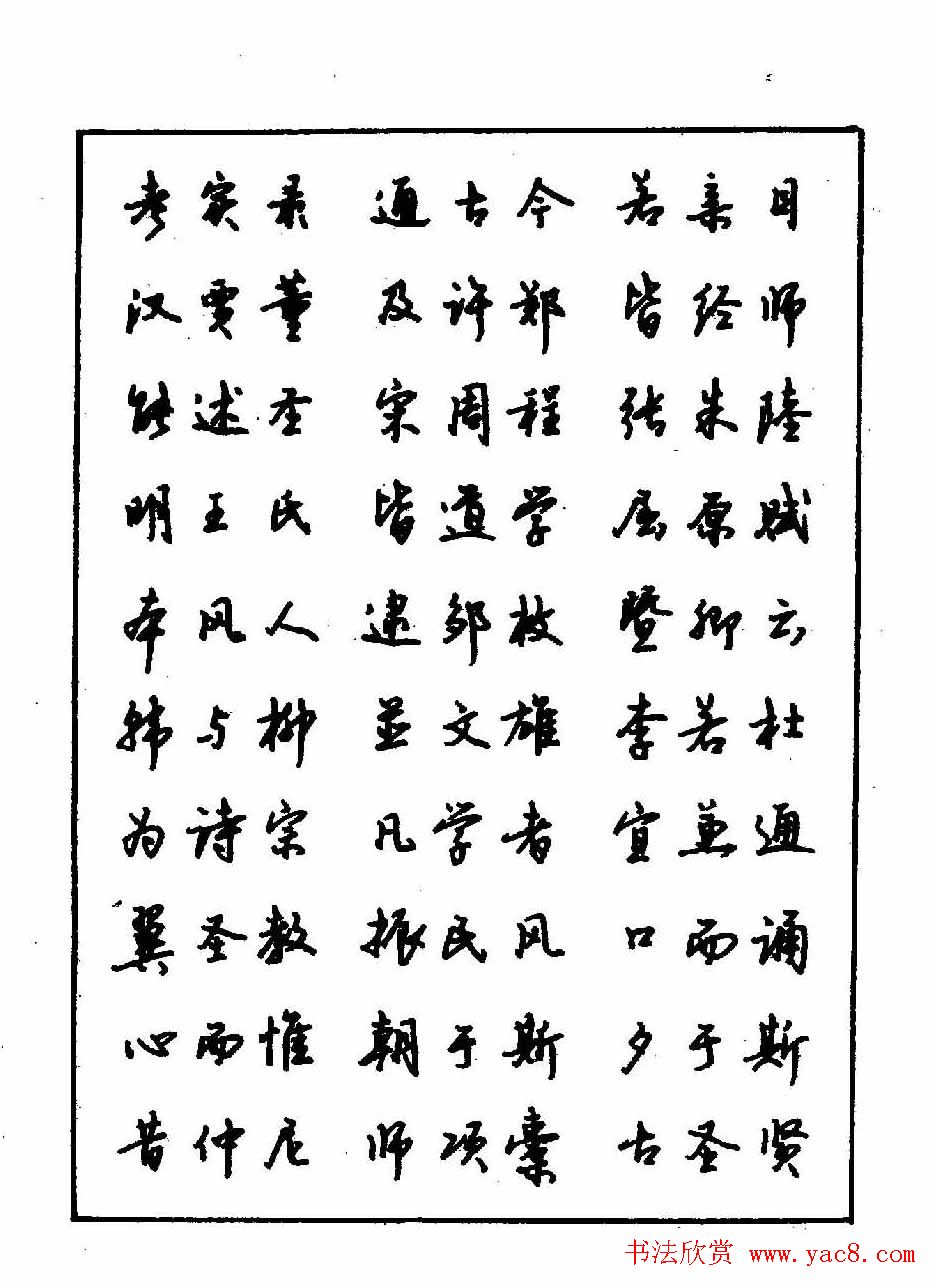 考实录 通古今 若亲目
汉贾董 及许郑 皆经师
能述圣 宋周程 张朱陆
明王氏 皆道学 屈原赋
本风人 逮邹枚 暨卿云
韩与柳 並文雄 李若杜
为诗宗 凡学者 宜兼通
翼圣教 振民风 口而诵
心而惟 朝于斯 夕于斯
昔仲尼 师项橐 古圣贤
书法欣赏 www.yac8.com